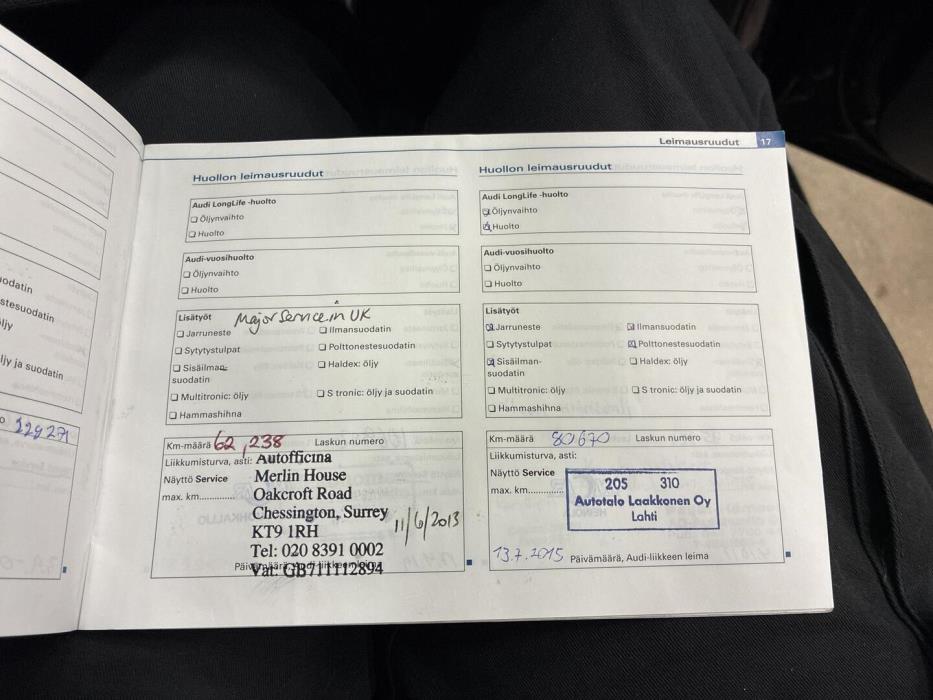 Leimausruudut 17
Huollon leimausruudut
Audi LongLife -huolto
Öljynvaihto
Huolto
Audi-vuosihuolto
Öljynvaihto
Huolto
Lisätyöt Major Service in UK
Jarruneste Ilmansuodatin
Sytytystulpat Polttonestesuodatin
Sisäilman- Haldex: öljy
suodatin
Multitronic: öljy S tronic: öljy ja suodatin
Hammashihna
Km-määrä 62,238 Laskun numero
Liikkumisturva, asti: Autofficina
Näyttö Service Merlin House
max. km............. Oakcroft Road
Chessington, Surrey 11/6/2013
KT9 1RH
Tel: 020 8391 0002
Päivämäärä, Audi-liikkeen leima
Vat: GB711112894
Huollon leimausruudut
Audi LongLife -huolto
Öljynvaihto
Huolto
Audi-vuosihuolto
Öljynvaihto
Huolto
Lisätyöt
Jarruneste Ilmansuodatin
Sytytystulpat Polttonestesuodatin
Sisäilman- Haldex: öljy
suodatin
Multitronic: öljy S tronic: öljy ja suodatin
Hammashihna
Km-määrä 80670 Laskun numero
Liikkumisturva, asti:
Näyttö Service
max. km.............
205 310
Autotalo Laakkonen Oy
Lahti
13.7.2015 Päivämäärä, Audi-liikkeen leima
odatin
stesuodatin
ljy
ljy ja suodatin
129271